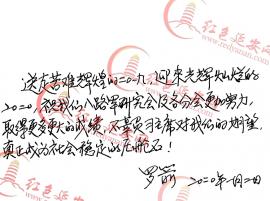 送走苦难辉煌的二〇一九，迎来光辉灿烂的
2020，祝我们八路军研究会及各分会更加努力，
取得更多更大的成绩，不辜负习主席对我们的期望，
真正成为社会稳定的压舱石！
罗箭 2020年1月2日
红色延安网
www.redyanan.com